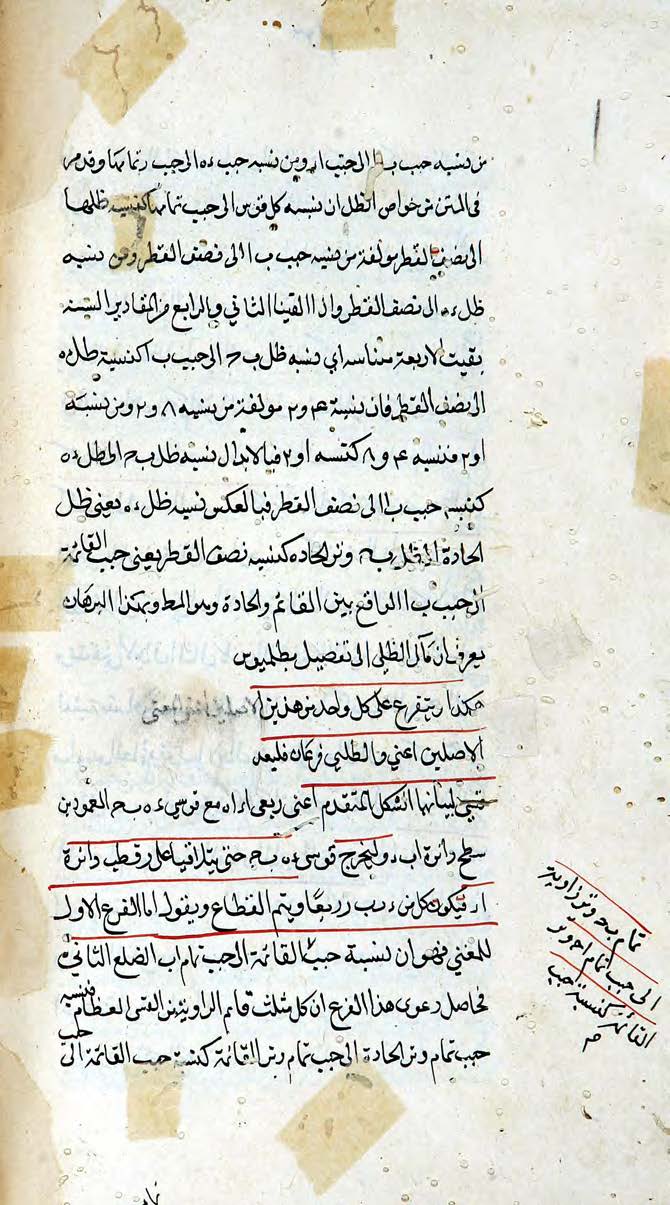 من نسبة جيب ب ا الى جيب ا ر ومن نسبة جيب ء ه الى جيب تمامها وقد مر
فى المتن من خواص الظل ان نسبة كل قوس الى جيب تمامها كنسبة ظلها
الى نصف القطر مولفة من نسبة جيب ب ا الى نصف القطر ومن نسبة
ظل ء ه الى نصف القطر واذا القينا الثاني والرابع من المقادير الستة
بقيت الاربعة متناسبة اى نسبة ظل ب ح الى جيب ب ا كنسبة ظل ء ه
الى نصف القطر فان نسبة ۴ و ۲ مولفة من نسبة ۸ و ۲ ومن نسبة
۱ و ۲ فنسبة ۴ و ۸ كنسبة ۱ و ۲ فبالابدال نسبة ظل ب ح الى ظل ء ه
كنسبة جيب ب ا الى نصف القطر فبالعكس نسبة ظل ء ه يعنى ظل
الحادة الى ظل ب ح وتر الحادة كنسبة نصف القطر يعنى جيب القائمة
الى جيب ب ا الواقع بين القائمة والحادة وهو المط وبهذا البرهان
يعرف ان مآل الظلى الى تفصيل بطلميوس
هكذا ويتفرع على كل واحد من هذين
الاصلين اعنى والظلى فرعان فليعد
لبيانها الشكل المتقدم اعنى ربعى ا ر ا ه مع قوسى ء ه ب ح العمودين
سطح دائرة ا ب ء وليخرج قوسى ء ه ب ح حتى يتلاقيا على ر قطب دائرة
ا ء فيكون كل من ء ر ب ر ربعا ويتم القطاع ويقول اما الفرع الاول
للمغنى فهو ان نسبة جيب القائمة الى جيب تمام ا ب الضلع الثانى
فحاصل دعوى هذا الفرع ان كل مثلث قائم الزاوية من القسى العظام فنسبة
جيب تمام وتر الحادة الى جيب تمام وتر القائمة كنسبة جيب القائمة الى جيب
تمام ب ح وتر زاوية
الى جيب تمام ا ح وتر
القائمة كنسبة جيب
م